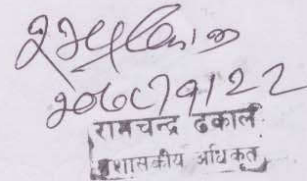 २०७८/१/२२
रामचन्द्र ढकाल
प्रशासकीय अधिकृत